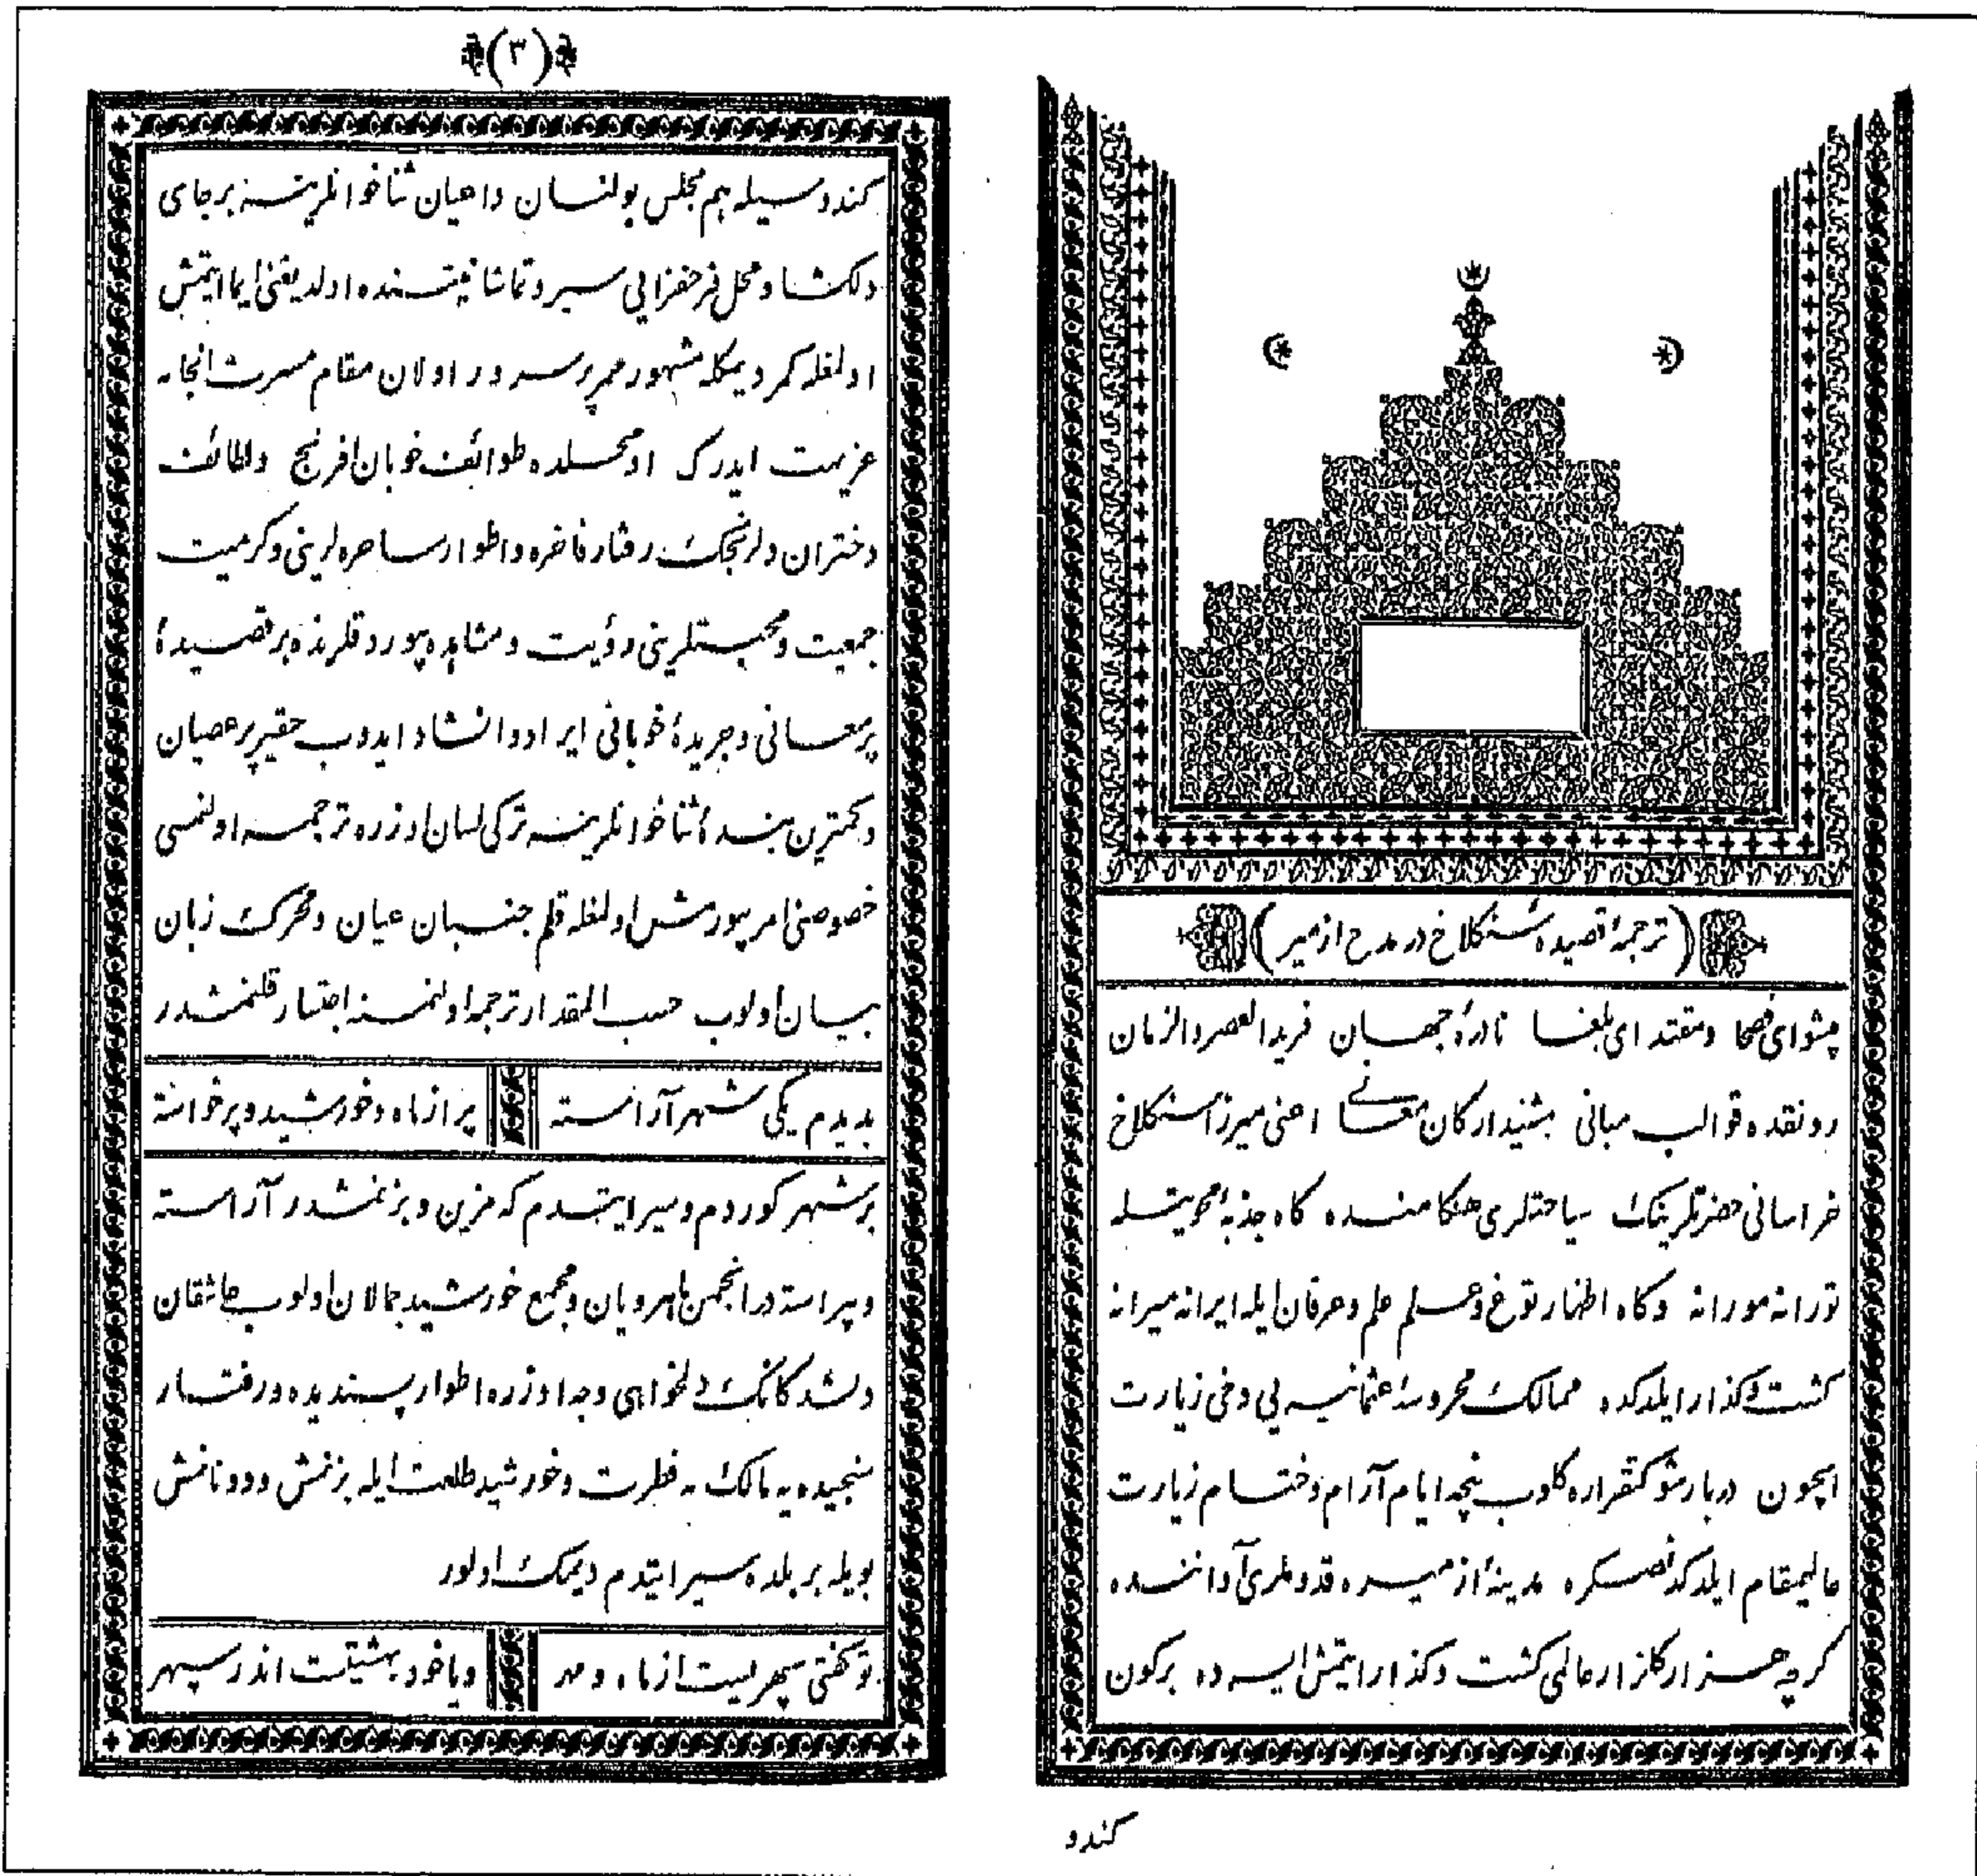 (ترجمۀ قصیدۀ سنکلاخ در مدح ازمیر)
پیشوای فصحا ومقتدای بلغا نادرۀ جهان فریدالعصر والزمان
رونقده قوالب مبانی مشیدارکان معانی اعنی میرزا سنکلاخ
خراسانی حضرتلرینک سیاحتلری هنکامنده کاه جذبۀ محویتله
تورانه مورانه وکاه اظهار توغ وعلم علم وعرفان ایله ایرانه میرانه
کشت وکذار ایلدکده ممالک محروسۀ عثمانیه یی دخی زیارت
ایچون دربار شوکتقراره کلوب نیچه ایام آرام وختام زیارت
عالیمقام ایلدکدنصکره مدینۀ ازمیره قدوملری آواننده
کرچه هزار کلزار عالمی کشت وکذار ایتمش ایسه ده برکون
کندو
(٣)
کندوسیله هم مجلس بولنان داعیان ثناخوانلرینه برجای
دلکشا ومحل فرحفزایی سیر وتماشا نیتنده اولدیغنی ایما ایتمش
اولمغله کمر دیمکله مشهور ممر پرسرور اولان مقام مسرت انجامه
عزیمت ایدرک اومحلده طوائف خوبان افرنج ولطائف
دختران دلرنجک رفتار فاخره واطوار ساحره لرینی وکرمیت
جمعیت ومحبتلرینی رؤیت ومشاهده بیوردقلرنده برقصیدۀ
پرمعانی وجریدۀ خوبانی ایراد وانشاد ایدوب حقیر پرعصیان
وکمترین بندۀ ثناخوانلرینه ترکی لسان اوزره ترجمه اولنمسی
خصوصنی امر بیورمش اولمغله قلم جنبان عیان ومحرک زبان
بیان اولوب حسب المقدار ترجمه اولنمسنه اجتسار قلنمشدر
بدیدم یکی شهر آراسته پر از ماه وخورشید وپرخواسته
برشهر کوردم وسیر ایتدم که مزین وبزنمشدر آراسته
وپیراسته در انجمن ماهرویان ومجمع خورشید جمالان اولوب عاشقان
دلشدکانک دلخواهی وجه اوزره اطوار پسندیده ورفتار
سنجیده یه مالک مه فطرت وخورشید طلعت ایله بزنمش ودونانمش
بویله بر بلده سیر ایتدم دیمک اولور
توکفتی سپهریست از ماه ومهر ویاخود بهشتیست اندر سپهر